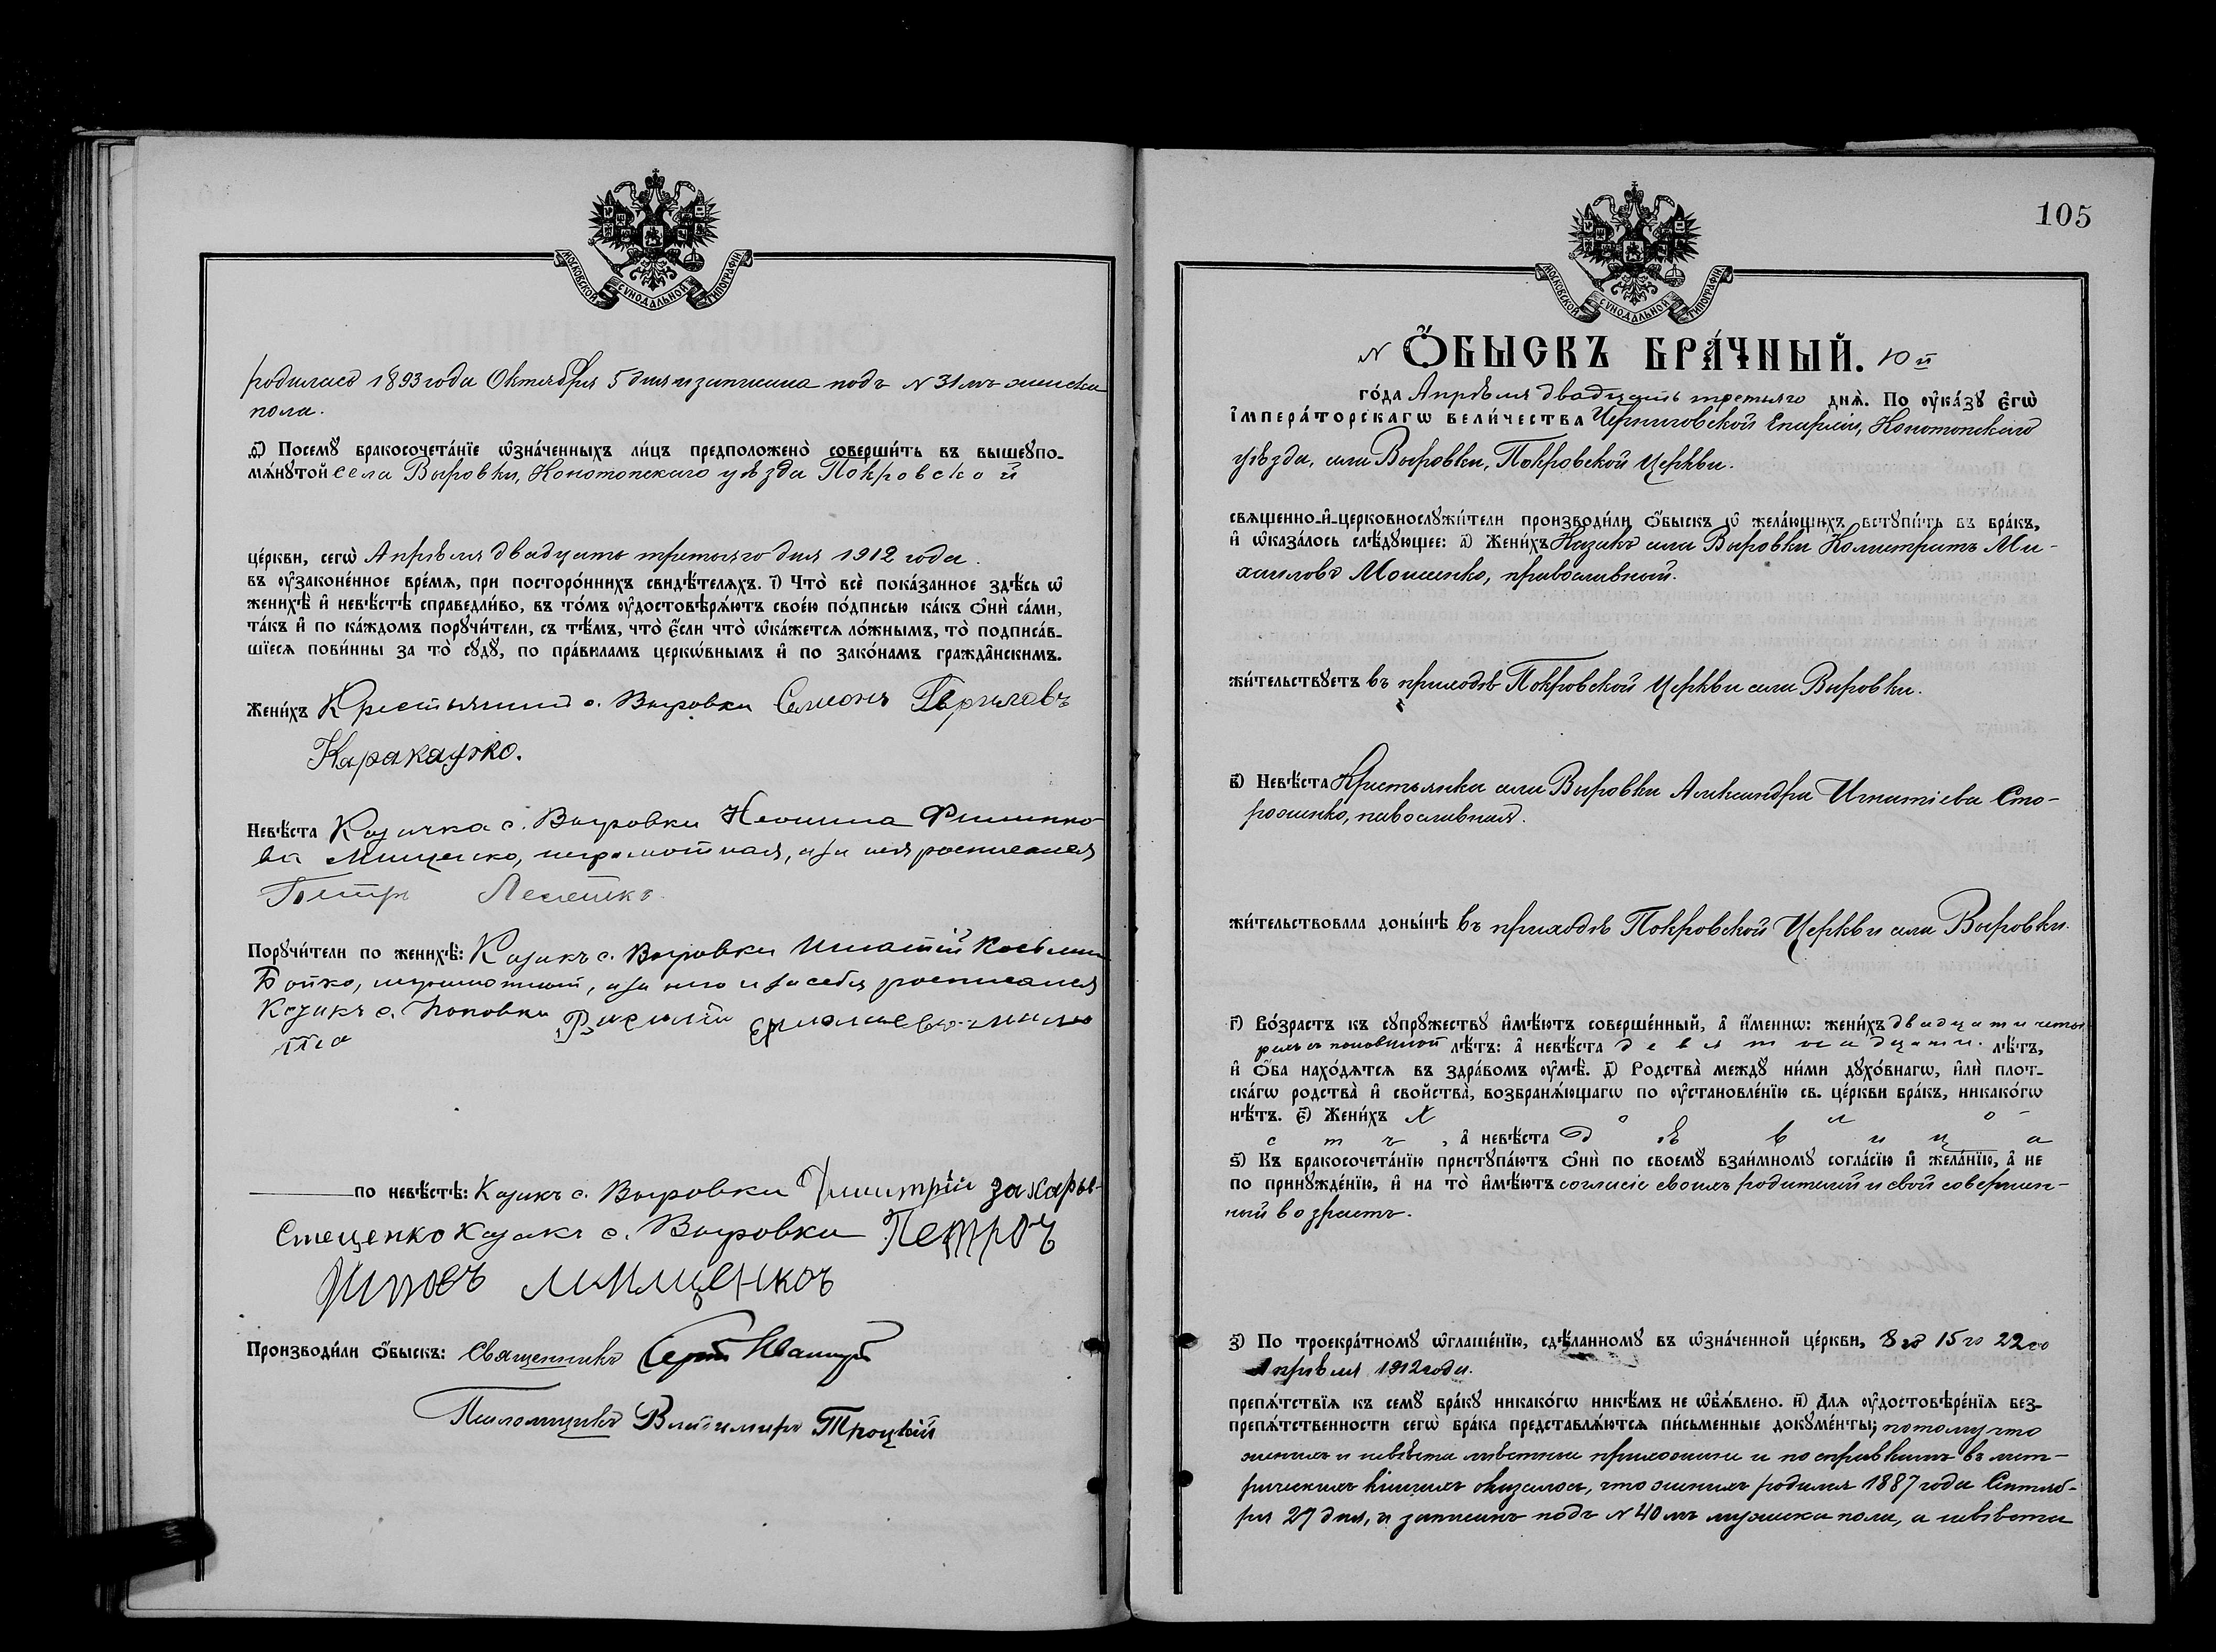 МОСКОВСКОЙ СѴНОДАЛЬНОЙ ТИПОГРАФІИ
родилась 1893 года Октября 5 дня и записана подъ N 31мъ женска
пола.
д҃) Посемꙋ бракосочета́нїе ѡ҆зна́ченныхъ ли́цъ предположено̀ соверши́ть въ вышеꙋпо-
мѧ́нꙋтой села Выровки, Конотопскаго уѣзда Покровской
це́ркви, сегѡ̀ Апрѣля двадцать третьяго дня 1912 года.
въ ᲂу҆зако́ненное вре́мѧ, при посторо́ннихъ свидѣ́телѧхъ. і҃) Что̀ всѐ пока́занное здѣ́сь ѡ҆
женихѣ̀ и҆ невѣ́стѣ справедли́во, въ то́мъ ᲂу҆достовѣрѧ́ютъ свое́ю по́дписью ка́къ ѻ҆нѝ са́ми,
та́къ и҆ по ка́ждомъ порꙋчи́тели, съ тѣ́мъ, что̀ є҆́сли что̀ ѡ҆ка́жетсѧ ло́жнымъ, то̀ подписа́в-
шїесѧ пови́нны за то̀ сꙋдꙋ̀, по пра́виламъ церкѡ́внымъ и҆ по зако́намъ гражда̑нскимъ.
Жени́хъ Крестьянинъ с. Выровки Семионъ Гаврилавъ
Каракаушко.
Невѣ́ста Козачка с. Выровки Филимоно
ва Мищенко, неграмотная, а за нея росписался
Петръ
Порꙋчи́тели по женихѣ̀: Козакъ с. Выровки Игнатій Косьмин
Бойко, неграмотный, а за него и за себя росписался
Козакъ с. Поповки
по невѣ́стѣ: Козакъ с. Выровки Димитрій Захарье-
Стеценко Козакъ с. Выровки Петръ
Мищенко
Производи́ли ѻ҆́быскъ: Священникъ
Псаломщикъ Владимиръ Троцкій
105
МОСКОВСКОЙ СѴНОДАЛЬНОЙ ТИПОГРАФІИ
N Ѻ҆́БЫСКЪ БРА́ЧНЫЙ. 10й
го́да Апрѣля двадцать третьяго днѧ̀. По ᲂу҆ка́зꙋ є҆гѡ̀
і҆мпера́торскагѡ вели́чества Черниговской Епархіи, Конотопскаго
уѣзда, села Выровки, Покровской Церкви.
свѧщенно-и҆-церковнослꙋжи́тели производи́ли ѻ҆́быскъ ѡ҆ жела́ющихъ встꙋпи́ть въ бра́къ,
и҆ ѡ҆каза́лось слѣ́дꙋющее: а҃) Жени́хъ Казакъ села Выровки Калистратъ Ми-
хаиловъ Мошенко, православный.
жи́тельствꙋетъ въ приходѣ Покровской Церкви села Выровки.
в҃) Невѣ́ста Крестьянка села Выровки Александра Игнатіева Сто-
роженко, павославная.
жи́тельствовала доны́нѣ въ приходѣ Покровской Церкви села Выровки.
г҃) Во́зрастъ къ сꙋпрꙋ́жествꙋ и҆мѣ́ютъ соверше́нный, а҆ и҆́меннѡ: жени́хъ двадцати четы
рехъ съ половиной лѣ́тъ: а҆ невѣ́ста девятнадцати. лѣ́тъ,
и҆ ѻ҆́ба нахо́дѧтсѧ въ здра́вомъ ᲂу҆мѣ̀. д҃) Родства̀ междꙋ̀ ни́ми дꙋхо́внагѡ, и҆лѝ плот-
ска́гѡ родства̀ и҆ свойства̀, возбранѧ́ющагѡ по ᲂу҆становле́нїю св. це́ркви бра́къ, никако́гѡ
нѣ́тъ. є҃) Жени́хъ Холо-
стъ, а҆ невѣ́ста дѣвица
ѕ҃) Къ бракосочета́нїю пристꙋпа́ютъ ѻ҆нѝ по своемꙋ̀ взаи́мномꙋ согла́сїю и҆ жела́нїю, а҆ не
по принꙋжде́нїю, и҆ на то̀ и҆мѣ́ютъ согласіе своихъ родителей и свой совершен-
ный возрастъ.
з҃) По троекра́тномꙋ ѡ҆глаше́нїю, сдѣ́ланномꙋ въ ѡ҆зна́ченной це́ркви, 8го 15го 22го
Апрѣля 1912 года.
препѧ́тствїѧ къ семꙋ̀ бра́кꙋ никако́гѡ никѣ́мъ не ѡ҆б̾ѧ́влено. и҃) Длѧ ᲂу҆достовѣре́нїѧ без-
препѧ́тственности сегѡ̀ бра́ка представлѧ́ютсѧ пи́сьменные докꙋме́нты; потому что
женихъ и невѣста мѣстные прихожане и по справкамъ въ мет-
рическихъ книгахъ оказалось, что женихъ родился 1887 года Сентяб-
ря 27 дня, и записанъ подъ N 40мъ мужска пола, а невѣста